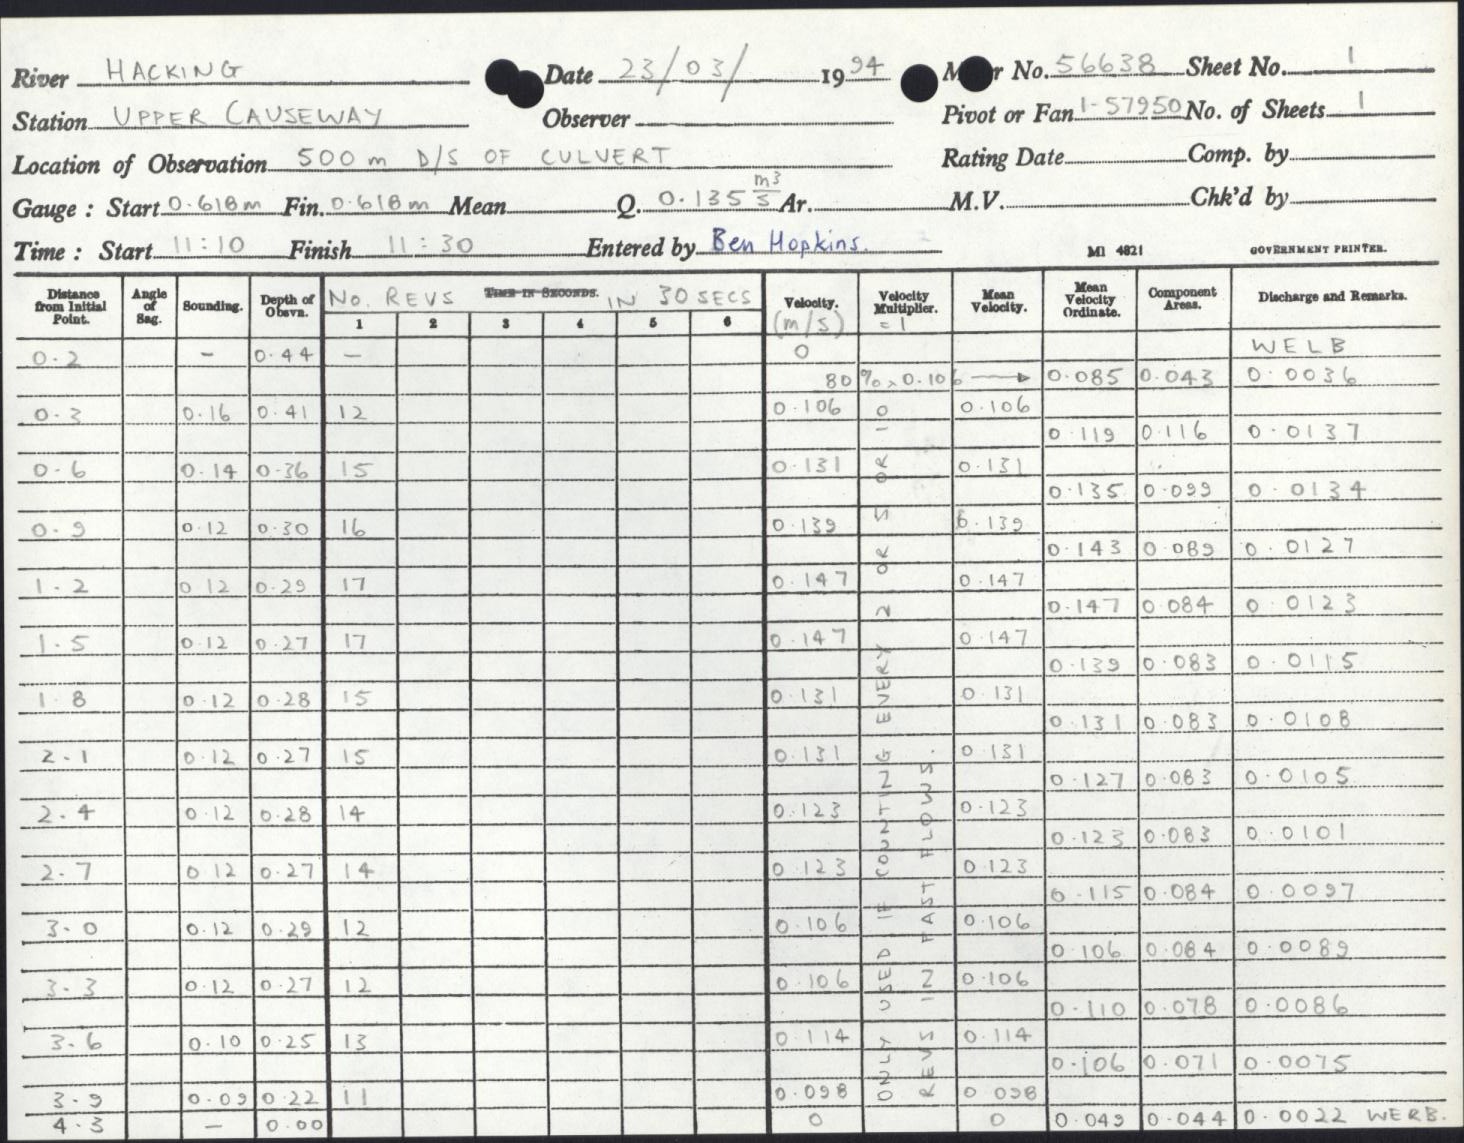 River HACKING Date 23/03/ 1994 Meter No. 56638 Sheet No. 1
Station UPPER CAUSEWAY Observer Pivot or Fan 1-57950 No. of Sheets 1
Location of Observation 500m D/S OF CULVERT Rating Date Comp. by
Gauge : Start 0.618m Fin. 0.618m Mean Q. 0.135 m3/s Ar. M.V. Chk'd by
Time : Start 11:10 Finish 11:30 Entered by Ben Hopkins. MI 4821 GOVERNMENT PRINTER.
Distance from Initial Point. Angle of Sag. Sounding. Depth of Obsvn. No. REVS TIME IN SECONDS. IN 30 SECS Velocity. (m/s) Velocity Multiplier. = 1 Mean Velocity. Mean Velocity Ordinate. Component Areas. Discharge and Remarks.
1 2 3 4 5 6
0.2 - 0.44 - 0 WELB
80% x 0.106 → 0.085 0.043 0.0036
0.3 0.16 0.41 12 0.106 0.106
0.119 0.116 0.0137
0.6 0.14 0.36 15 0.131 0.131
0.135 0.099 0.0134
0.9 0.12 0.30 16 0.139 0.139
0.143 0.089 0.0127
1.2 0.12 0.29 17 0.147 0.147
0.147 0.084 0.0123
1.5 0.12 0.27 17 0.147 0.147
0.139 0.083 0.0115
1.8 0.12 0.28 15 0.131 0.131
0.131 0.083 0.0108
2.1 0.12 0.27 15 0.131 0.131
0.127 0.083 0.0105
2.4 0.12 0.28 14 0.123 0.123
0.123 0.083 0.0101
2.7 0.12 0.27 14 0.123 0.123
0.115 0.084 0.0097
3.0 0.12 0.29 12 0.106 0.106
0.106 0.084 0.0089
3.3 0.12 0.27 12 0.106 0.106
0.110 0.078 0.0086
3.6 0.10 0.25 13 0.114 0.114
0.106 0.071 0.0075
3.9 0.09 0.22 11 0.098 0.098
4.3 - 0.00 0 0 0.049 0.044 0.0022 WERB.
ONLY USED IF COUNTING EVERY 2 OR 5 OR 10
REVS IN FAST FLOWS.